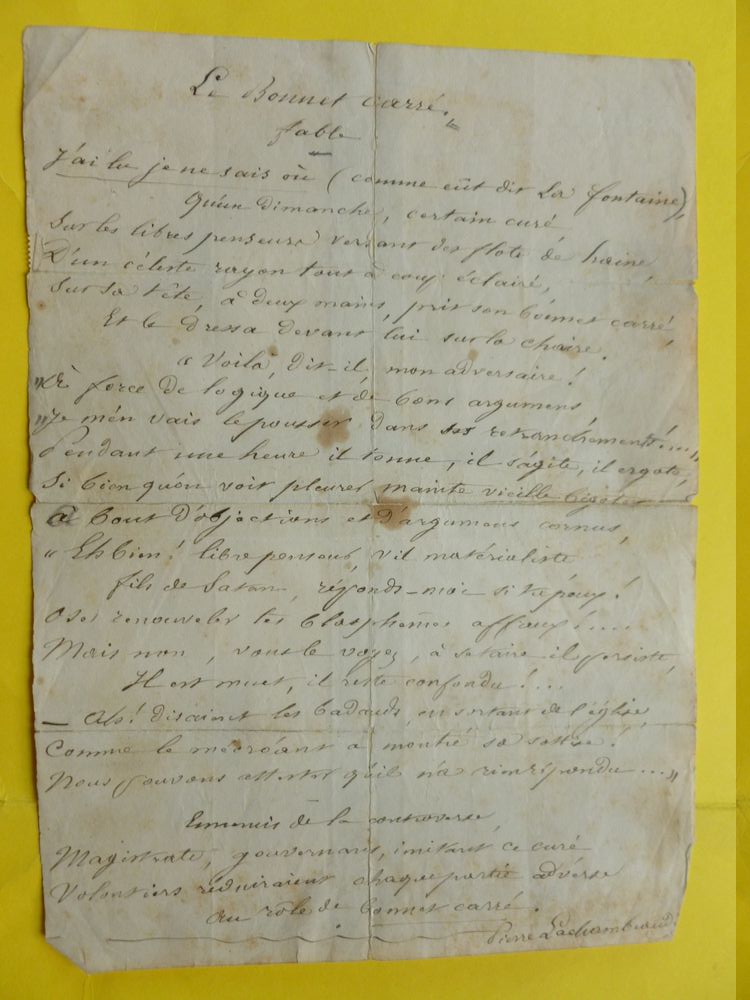 Le Bonnet carré.
fable
J'ai lu je ne sais où (comme eût dit La fontaine),
Qu'un Dimanche, certain curé
Sur les libres penseurs versant des flots de haine,
D'un céleste rayon tout à coup éclairé,
Sur sa tête, à deux mains, prit son bonnet carré
Et le dressa devant lui sur la chaire.
" Voilà, dit-il, mon adversaire !
" à force de logique et de bons argumens
" Je m'en vais le pousser dans ses retranchements !... "
Pendant une heure il tonne, il s'agite, il ergote,
Si bien qu'on voit pleurer mainte vieille bigote
à bout d'objections et d'argumens cornus,
" Eh bien ! libre penseur, vil matérialiste
fils de Satan, réponds-moi si tu peux !
Ose renouveler tes blasphèmes affreux !....
Mais non, vous le voyez, à se taire il persiste,
Il est muet, il reste confondu !...
— Ah ! disaient les badauds, en sortant de l'église
Comme le mécréant a montré sa sottise !
Nous pouvons attester qu'il n'a rien répondu ... "
Ennemis de la controverse,
Magistrats, gouvernans, imitant ce curé
Volontiers réduiraient chaque partie adverse
Au rôle de bonnet carré.
Pierre Lachambeaudie